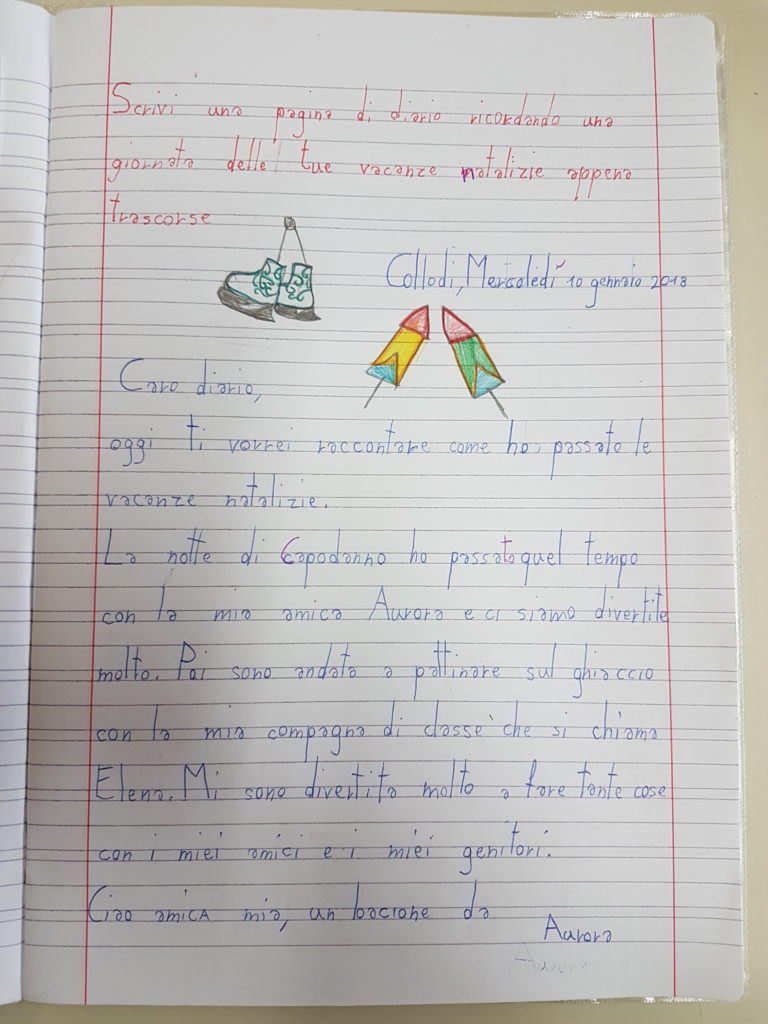 Scrivi una pagina di diario ricordando una
giornata delle tue vacanze natalizie appena
trascorse
Collodi, Mercoledì 10 gennaio 2018
Caro diario,
oggi ti vorrei raccontare come ho passato le
vacanze natalizie.
La notte di Capodanno ho passato quel tempo
con la mia amica Aurora e ci siamo divertite
molto. Poi sono andata a pattinare sul ghiaccio
con la mia compagna di classe che si chiama
Elena. Mi sono divertita molto a fare tante cose
con i miei amici e i miei genitori.
Ciao amica mia, un bacione da
Aurora
Aurora